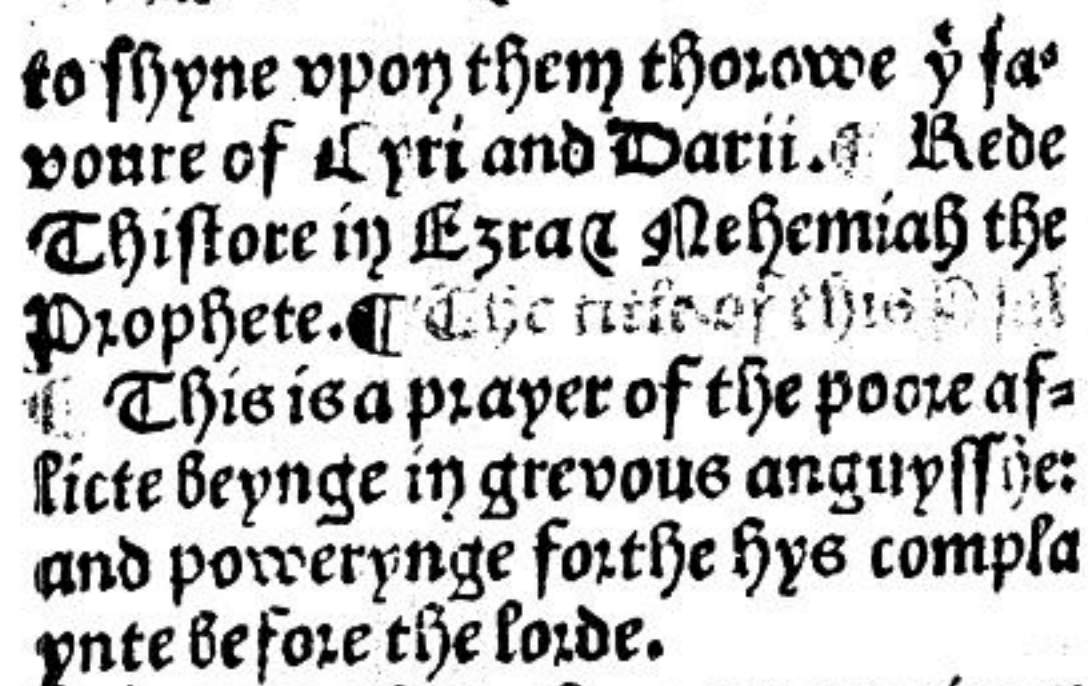 to shyne vpon them thorowe yͤ fa⸗
voure of Cyri and Darii.¶ Rede
Thistore in Ezra & Nehemiah the
Prophete.¶ The title of this Psal
¶ This is a prayer of the poore af⸗
licte beynge in grevous anguysshe:
and powerynge forthe hys compla
ynte before the lorde.